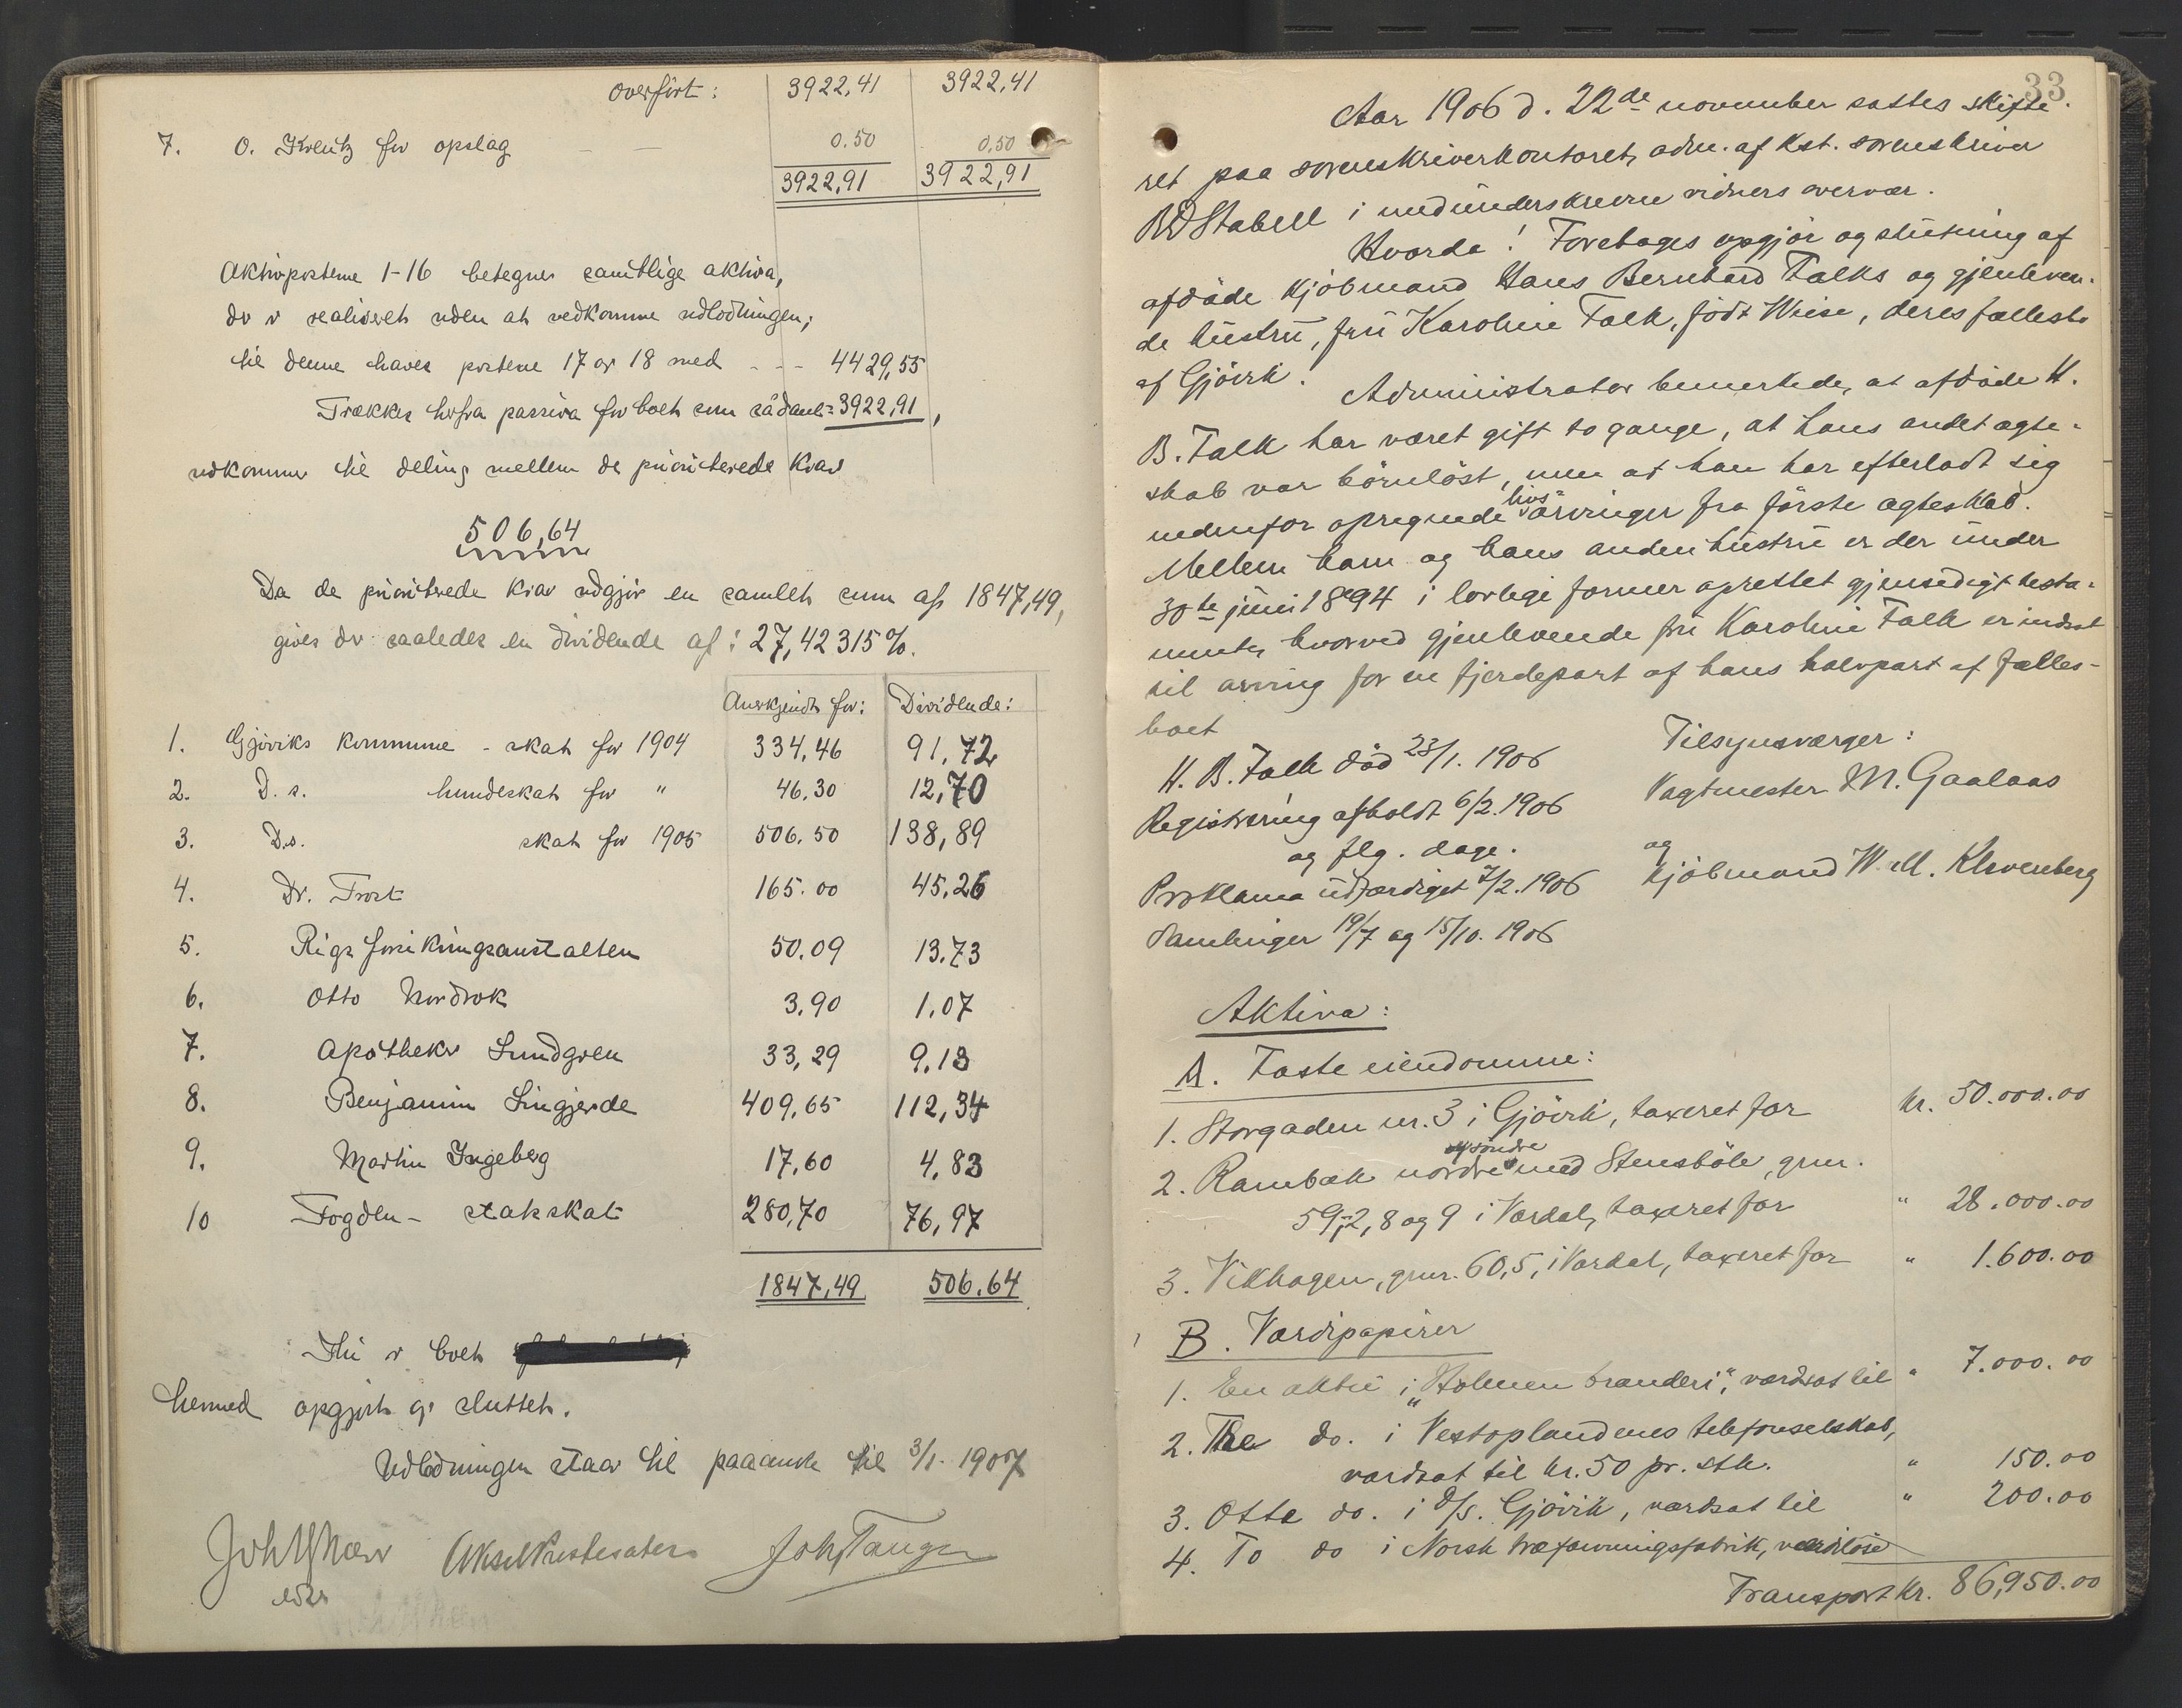 overført: 3922,41 3922,41
7. O. Kreutz for opslag — — 0.50 0,50
3922,91 3922,91
Aktivposterne 1-16 betegner samtlige aktiva,
der er realiseret uden at vedkomme udlodningen;
til denne haves posterne 17 og 18 med - - - 4429,55
Trækkes herfra passiva for boet som sådant = 3922,91,
udkommer til deling mellem de prioriterede krav
506,64
Da de prioriterede krav udgjør en samlet sum af 1847,49,
gives der saaledes en dividende af: 27,42315%.
Anerkjendt for: Dividende:
1. Gjøviks kommune - skat for 1904 334,46 91,72
2. D. s. hundeskat for " 46.30 12,70
3. D.s. skat for 1905 506.50 138,89
4. Dr. Frost 165.00 45,26
5. Rigsforsikringsanstalten 50.09 13.73
6. Otto Nordrok 3,90 1,07
7. Apotheker Lundgren 33,29 9,13
8. Benjamin Lingjerde 409,65 112,34
9. Martin Ingeberg 17,60 4,83
10 Fogden - statskat 280,70 76,97
1847,49 506.64
Thi er boet
hermed opgjort og sluttet.
Udlodningen staar til paaanke til 3/1- 1907
Aksel Prestesæter Joh Tanger
33
Aar 1906 d. 22de november sattes skifte-
ret paa sorenskriverkontoret, adm. af kst. sorenskriver
BD Stabell i medunderskrevne vidners overvær.
Hvorda! Foretages opgjör og slutning af
afdöde kjöbmand Hans Bernhard Falks og gjenleven-
de hustru, fru Karoline Falk, födt Wiese, deres fællesbo
af Gjövik.
Administrator bemerkede, at afdöde H.
B. Falk har været gift to gange, at hans andet ægte-
skab var börnlöst, men at han har efterladt sig
nedenfor opregnede livsarvinger fra förste ægteskab.
Mellem ham og hans anden hustru er der under
30te juni 1894 i lovlige former oprettet gjensidigt testa-
mente, hvorved gjenlevende fru Karoline Falk er indsat
til arving for en fjerdepart af hans halvpart af fælles-
boet
H. B. Falk död 23/1. 1906
Registrering afholdt 6/2. 1906
og flg. dage.
Proklama udfærdiget 7/2. 1906
Samlinger 19/7 og 15/10. 1906
Tilsynsværger:
Vagtmester M. Gaalaas
og
kjöbmand W. M. Klevenberg
Aktiva:
A. Faste eiendomme:
1. Storgaden nr. 3 i Gjövik, taxeret for kr. 50.000.00
2. Rambæk nordre og söndre med Stensböle, gnr.
59, 2, 8 og 9 i Vardal, taxeret for " 28.000.00
3. Vikhagen, gnr. 60,5, i Vardal, taxeret for " 1.600.00
B. Værdipapirer
1. En aktie i „Holmen brænderi", værdsat til " 7.000.00
2. Tre do. i Vestoplandenes telefonselskab,
værdsat til kr. 50 pr. stk. " 150.00
3. Otte do. i D/S. Gjövik, værdsat til " 200.00
4. To do i Norsk træfarvningsfabrik, værdilöse
Transport kr. 86,950.00